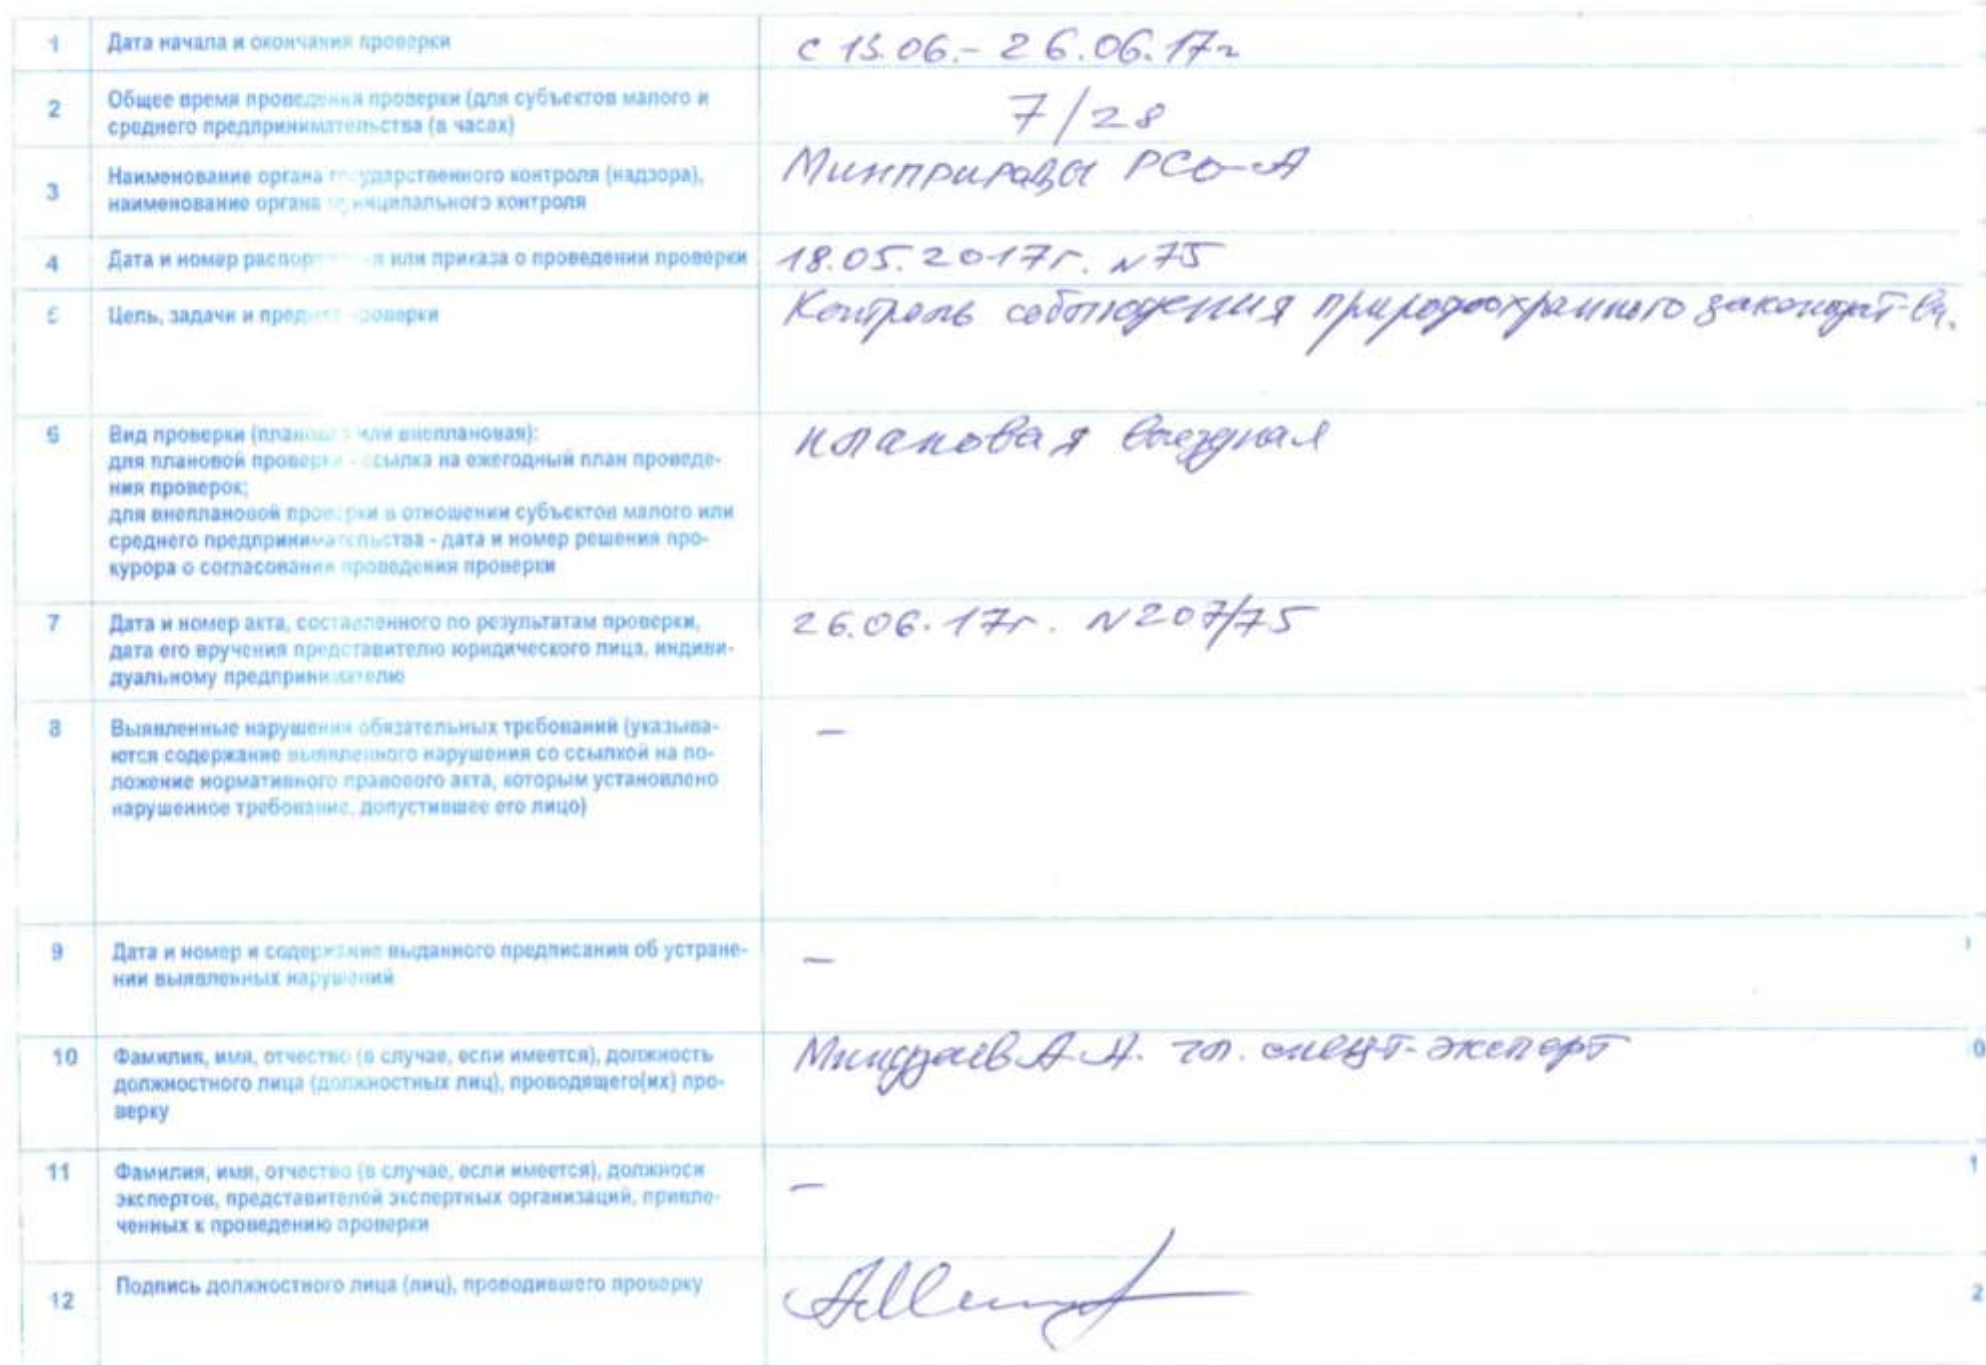 1 Дата начала и окончания проверки
с 15.06.- 26.06.17г
2 Общее время проведения проверки (для субъектов малого и
среднего предпринимательства (в часах)
7/28
3 Наименование органа государственного контроля (надзора),
наименование органа муниципального контроля
Минприроды РСО-А
4 Дата и номер распоряжения или приказа о проведении проверки
18.05.2017г. N75
5 Цель, задачи и предмет проверки
Контроль соблюдения природоохранного законодат-ва.
6 Вид проверки (плановая или внеплановая):
для плановой проверки - ссылка на ежегодный план проведе-
ния проверок;
для внеплановой проверки в отношении субъектов малого или
среднего предпринимательства - дата и номер решения про-
курора о согласовании проведения проверки
плановая выездная
7 Дата и номер акта, составленного по результатам проверки,
дата его вручения представителю юридического лица, индиви-
дуальному предпринимателю
26.06.17г. N207/75
8 Выявленные нарушения обязательных требований (указыва-
ются содержание выявленного нарушения со ссылкой на по-
ложение нормативного правового акта, которым установлено
нарушенное требование, допустившее его лицо)
–
9 Дата и номер и содержание выданного предписания об устране-
нии выявленных нарушений
–
10 Фамилия, имя, отчество (в случае, если имеется), должность
должностного лица (должностных лиц), проводящего(их) про-
верку
А.А. гл. специ-эксперт
0
11 Фамилия, имя, отчество (в случае, если имеется), должноси
экспертов, представителей экспертных организаций, привле-
ченных к проведению проверки
–
1
12 Подпись должностного лица (лиц), проводившего проверку
2